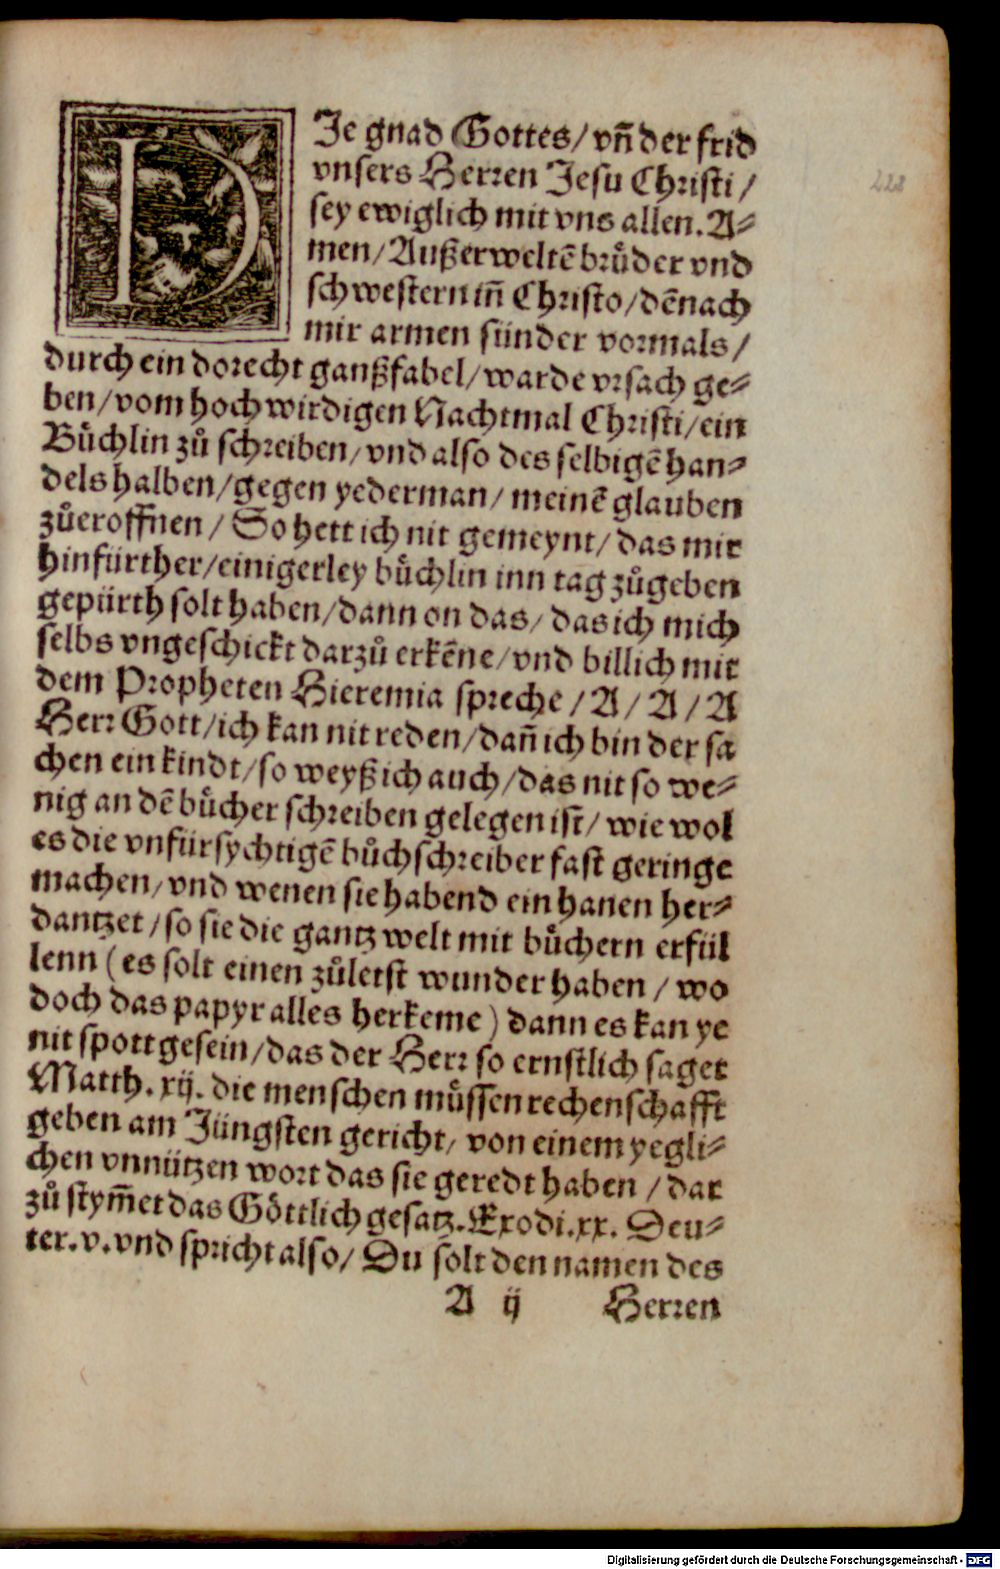 DIe gnad Gottes/ vn̄ der frid
vnsers Herren Jesu Christi/
sey ewiglich mit vns allen. A⸗
men/ Außerweltē brůder vnd
schwestern iñ Christo/ dēnach
mir armen sünder vormals/
durch ein dorecht ganßfabel/ warde vrsach ge⸗
ben/ vom hochwirdigen Nachtmal Christi/ ein
Bůchlin zů schreiben/ vnd also des selbigē han⸗
dels halben/ gegen yederman/ meinē glauben
zůeroffnen/ So hett ich nit gemeynt/ das mir
hinfürther/ einigerley bůchlin inn tag zůgeben
gepürth solt haben/ dann on das/ das ich mich
selbs vngeschickt darzů erkēne/ vnd billich mit
dem Propheten Hieremia spreche/ A/ A/ A
Herr Gott/ ich kan nit reden/ dañ ich bin der sa
chen ein kindt/ so weyß ich auch/ das nit so we⸗
nig an dē bůcher schreiben gelegen ist/ wie wol
es die vnfürsychtigē bůchschreiber fast geringe
machen/ vnd wenen sie habend ein hanen her⸗
dantzet/ so sie die gantz welt mit bůchern erfül
lenn (es solt einen zůletst wunder haben/ wo
doch das papyr alles herkeme) dann es kan ye
nit spott gesein/ das der Herr so ernstlich saget
Matth. xij. die menschen můssen rechenschafft
geben am Jüngsten gericht/ von einem yegli⸗
chen vnnützen wort das sie geredt haben/ dar
zů stym̄et das Göttlich gesatz. Exodi. xx. Deu⸗
ter. v. vnd spricht also/ Du solt den namen des
A ij Herren
228
Digitalisierung gefördert durch die Deutsche Forschungsgemeinschaft - DFG